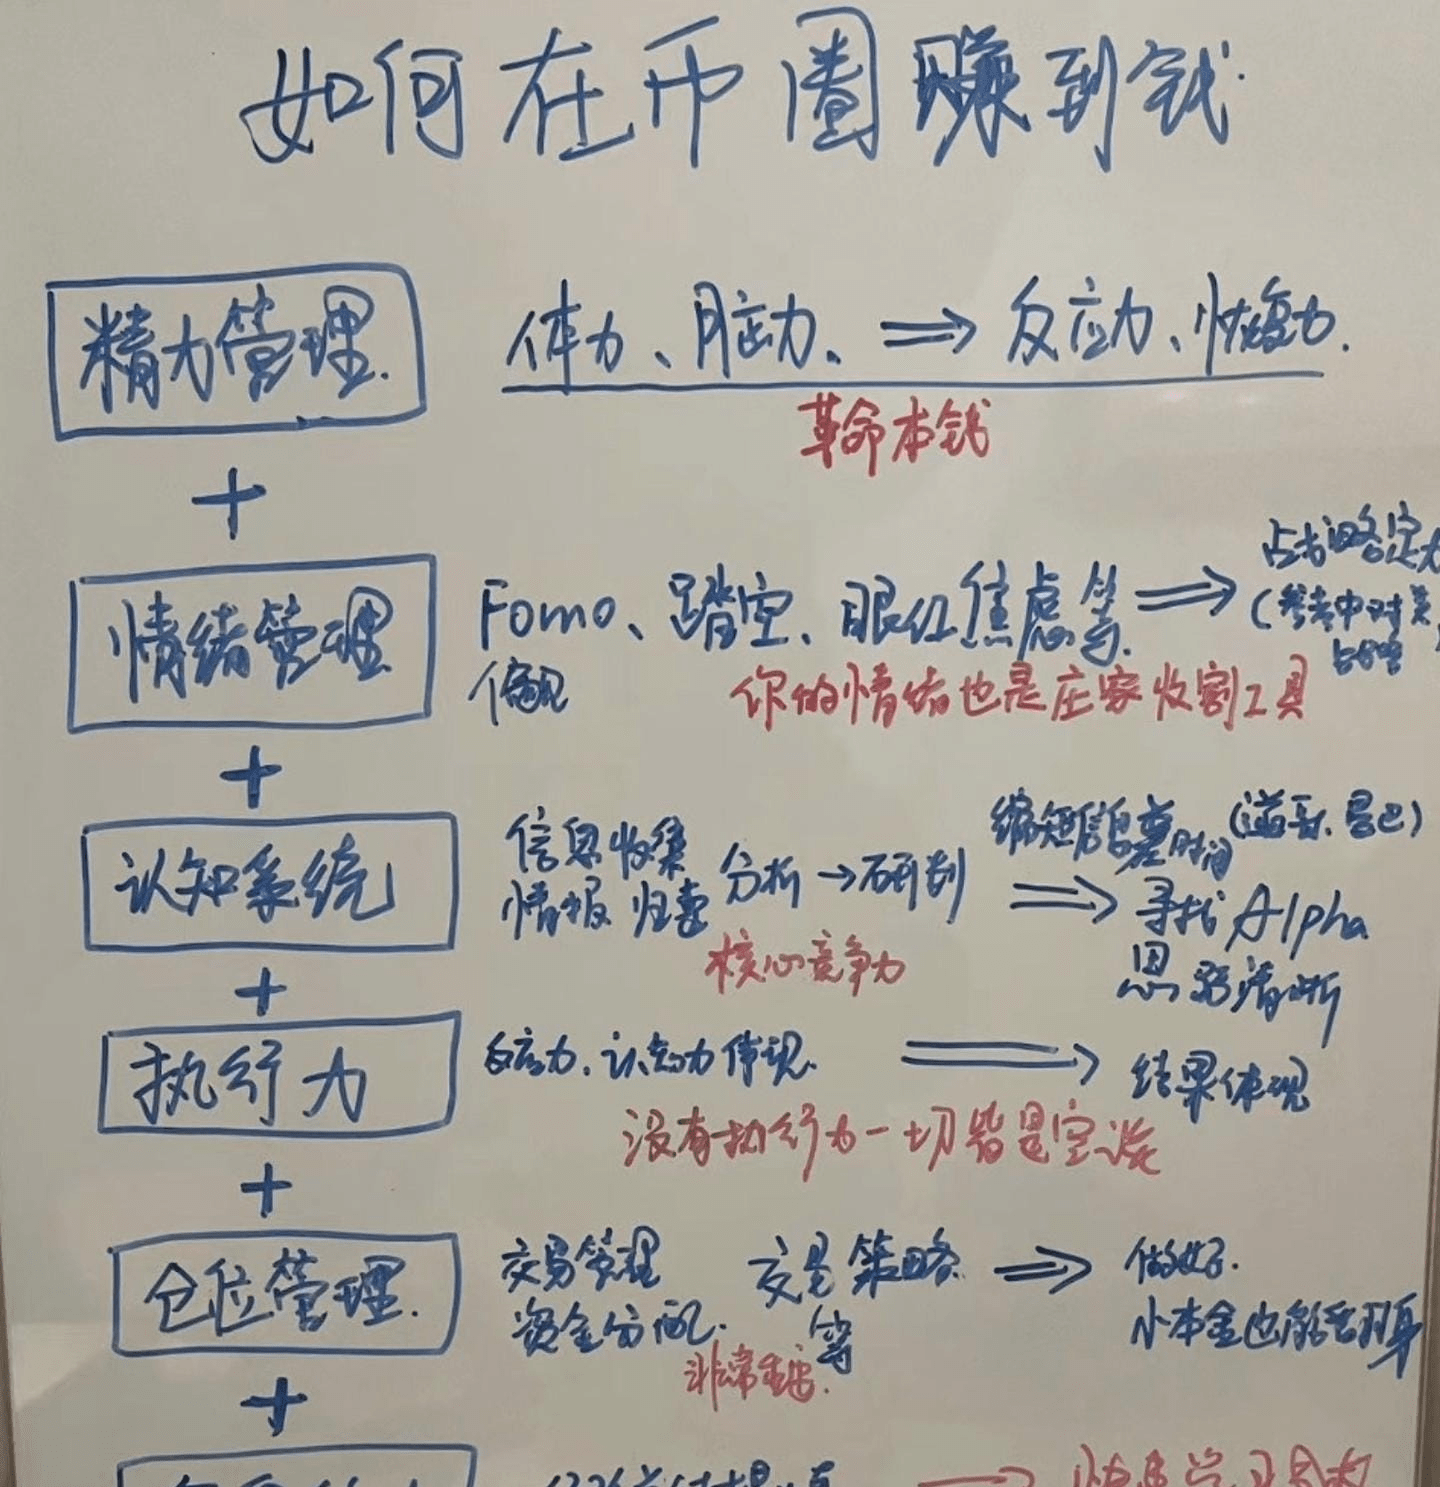 如何在币圈赚到钱.
精力管理.
体力、脑力、⇒ 反应力、恢复力.
革命本钱
+
情绪管理
Fomo、踏空、眼红焦虑等. ⇒ 占战略定
偏见
(参考中对美
你的情绪也是庄家收割工具
+
认知系统
信息收集
情报 归纳
分析→研判
核心竞争力
缩短信息差时间
⇒ 寻找 Alpha
思路清晰
+
执行力
反应力、认知力体现. ⇒ 结果体现
没有执行力一切皆是空谈
+
仓位管理.
交易管理
资金分配.
交易策略
等
非常重要.
⇒ 做好.
小本金也能翻身
+